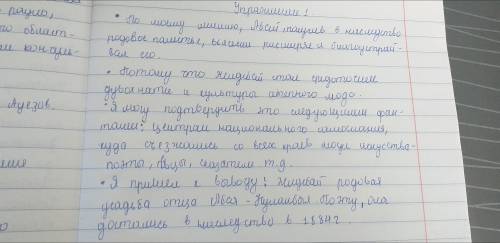 рацио,
то област-
м кон
Ауезов.
Упражнение 1
• По моему мнению, Абай получив в наследство
родовое поместье, расширя и благоустрай-
вал его.
• Потому что Жидебай стал средоточием
духовности и культуры степного
• Я могу подтвердить это следующими фак-
тами: центрам национального самосознания,
куда съезжались со всех краев люди искусства-
поэты, певцы, сказатели т.д.
• Я пришел к выводу: Жидебай родовая
усадьба отца Абая - Кунанбая Поэту, она
досталась в наследство в 1884г.